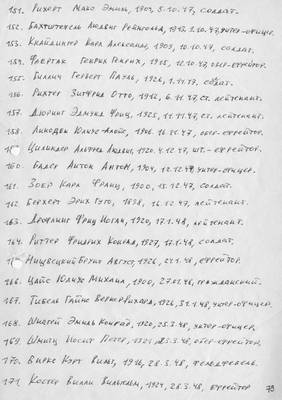 151. Рихорт Макс Эмиль, 1909, 5.10.47, солдат.
152. Людвиг Рейнгольд, унтер-офицер.
153. Клайдинтер Карл Александр, 1909, 10.10.47, солдат.
154. Флертак Генрих Генрих, 1915, 12.10.47, обер-ефрейтор.
155. Биллич Герберт Пауль, 1926, солдат.
156. Рихтер Зигфрид Отто, 1912, 6.11.47, ст. лейтенант.
157. Дюринг Эдмунд Фриц, 1925, 11.11.47, ст. лейтенант.
158. Линодви Юлиус-Алоис, 1906. 16.11.47, обер-ефрейтор.
Цилиндер Альфред Людвиг, 1920. 4.12.47, шт.-ефрейтор.
160. Бадер Антон Антон, 1904, 12.12.47, унтер-офицер.
161. Зоер Карл Франц, 1900, 15.12.47, солдат.
162. Берхет Эрих Гуго, 1898, 16.12.47, лейтенант.
163. Фриц Иоган, 1920, 17.1.48, лейтенант.
164. Риттер Фридрих Конрад, 1927, 17.1.48, солдат.
Ницвецкий Бруно Август, 1926, 24.1.48, ефрейтор.
166. Цайс Юлиус Михаил, 1900, 27.01.48, гражданский.
167. Тибель Гайнс Вернер-Рихард, 1926, 31.1.48, унтер-офицер.
168. Эмиль Конрад, 1920, 25.3.48, унтер-офицер.
169. Шмитц Иосиф Петер, 25.3.48, обер-ефрейтор.
170. Биркс Курт Вильг, 1916, 28.3.48, фельдфебель.
171. Костер Вилли Вильгельм, 1924, 28.3.48, ефрейтор
79